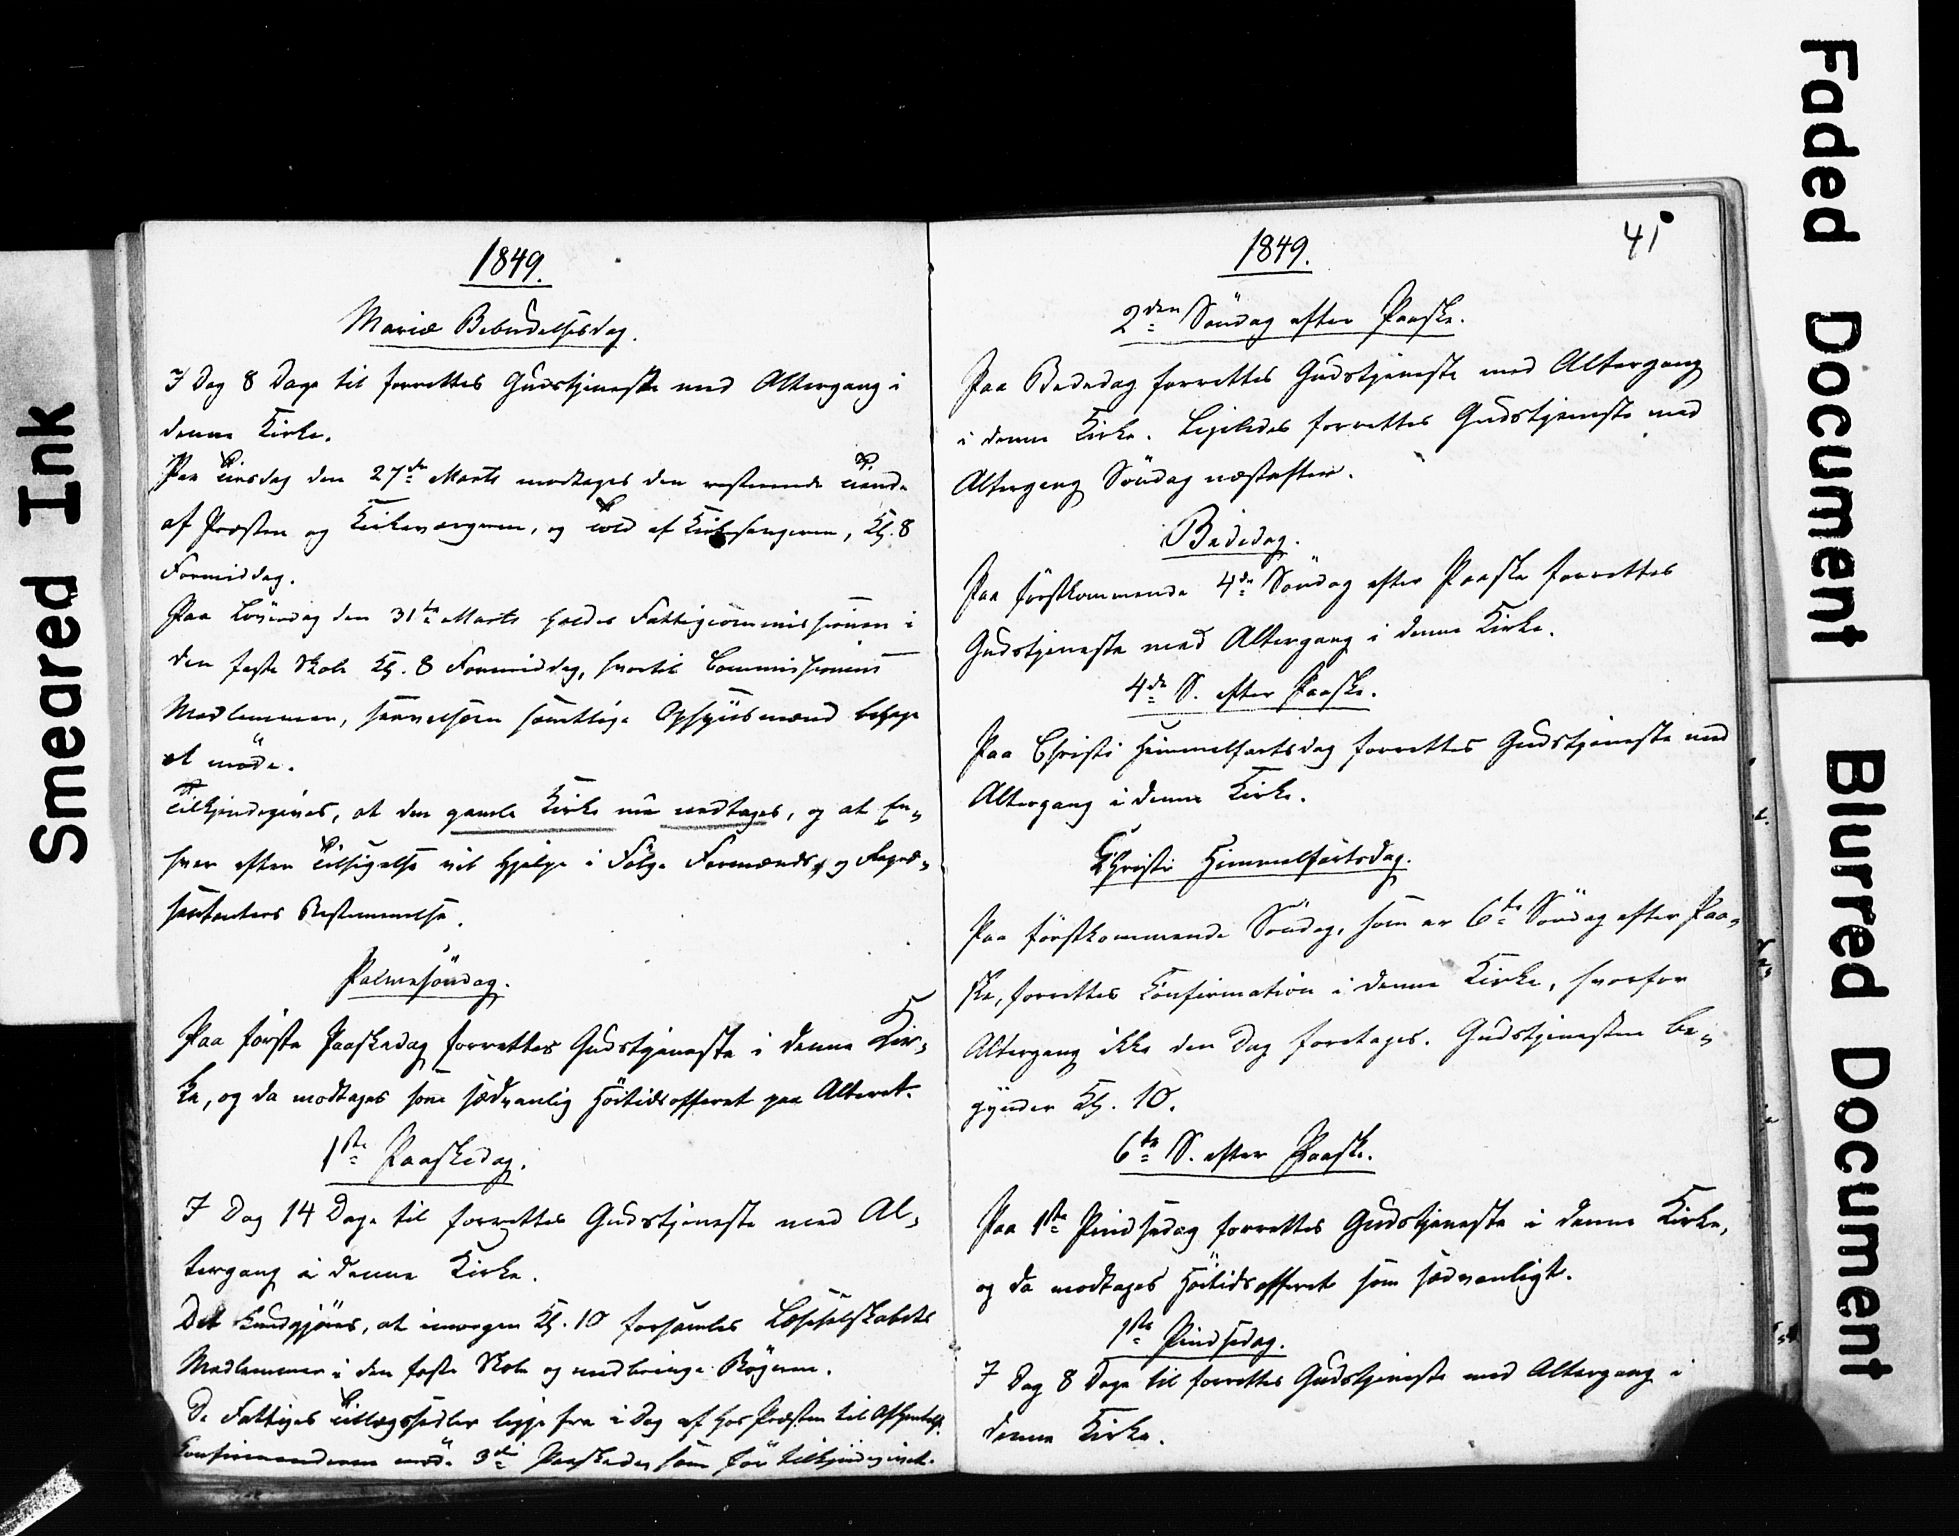 1849.
Mariæ Bebudelsesdag.
I Dag 8 Dage til forrettes Gudstjeneste med Altergang i
denne Kirke.
Paa Tirsdag den 27de Marts modtages den resterende Tiende
af Præsten og Kirkeværgeren, og Told af Kirkesangeren, Kl. 8
Formiddag.
Paa Løverdag den 31te Marts holdes Fattigcommissionen i
den faste Skole Kl. 8 Formiddag, hvortil Commissionens
Medlemmer, saavelsom samtlige Opsynsmænd behage
at møde.
Tilkjendegives, at den gamle Kirke nu nedtages, og at En-
hver efter Tilsigelse vil hjelpe i Følge Formænds, og Repræ-
sentanters Bestemmelse.
Palmesöndag.
Paa første Paaskedag forrettes Gudstjeneste i denne Kir-
ke, og da modtages som sædvanlig Höitidsofferet paa Alteret.
1ste Paaskedag.
I Dag 14 Dage til forrettes Gudstjeneste med Al-
tergang i denne Kirke.
Det kundgjöres, at imorgen Kl. 10 forsamles Læseselskabets
Medlemmer i den faste Skole og medbringe Bøgerne.
De Fattiges Tillægssedler ligge fra i Dag af hos Præsten til Afhentelse.
Confirmanderne møde 3die Paaskedag som før tilkjendegivet.
1849.
41
2den Söndag efter Paaske.
Paa Bededag forrettes Gudstjeneste med Altergang
i denne Kirke. Ligeledes forrettes Gudstjeneste med
Altergang Söndag næstefter.
Bededag.
Paa förstkommende 4de Söndag efter Paaske forrettes
Gudstjeneste med Altergang i denne Kirke.
4de S. efter Paaske.
Paa Christi Himmelfartsdag forrettes Gudstjeneste med
Altergang i denne Kirke.
Christi Himmelfartsdag.
Paa förstkommende Söndag, som er 6te Söndag efter Paa-
ske, forrettes Confirmation i denne Kirke, hvorfor
Altergang ikke den Dag foretages. Gudstjenesten be-
gynder Kl. 10.
6te S. efter Paaske.
Paa 1ste Pindsedag forrettes Gudstjeneste i denne Kirke,
og da modtages Höitidsofferet som sædvanligt.
1ste Pindsedag.
I Dag 8 Dage til forrettes Gudstjeneste med Altergang i
denne Kirke.
Smeared Ink
Faded Document
Blurred Document